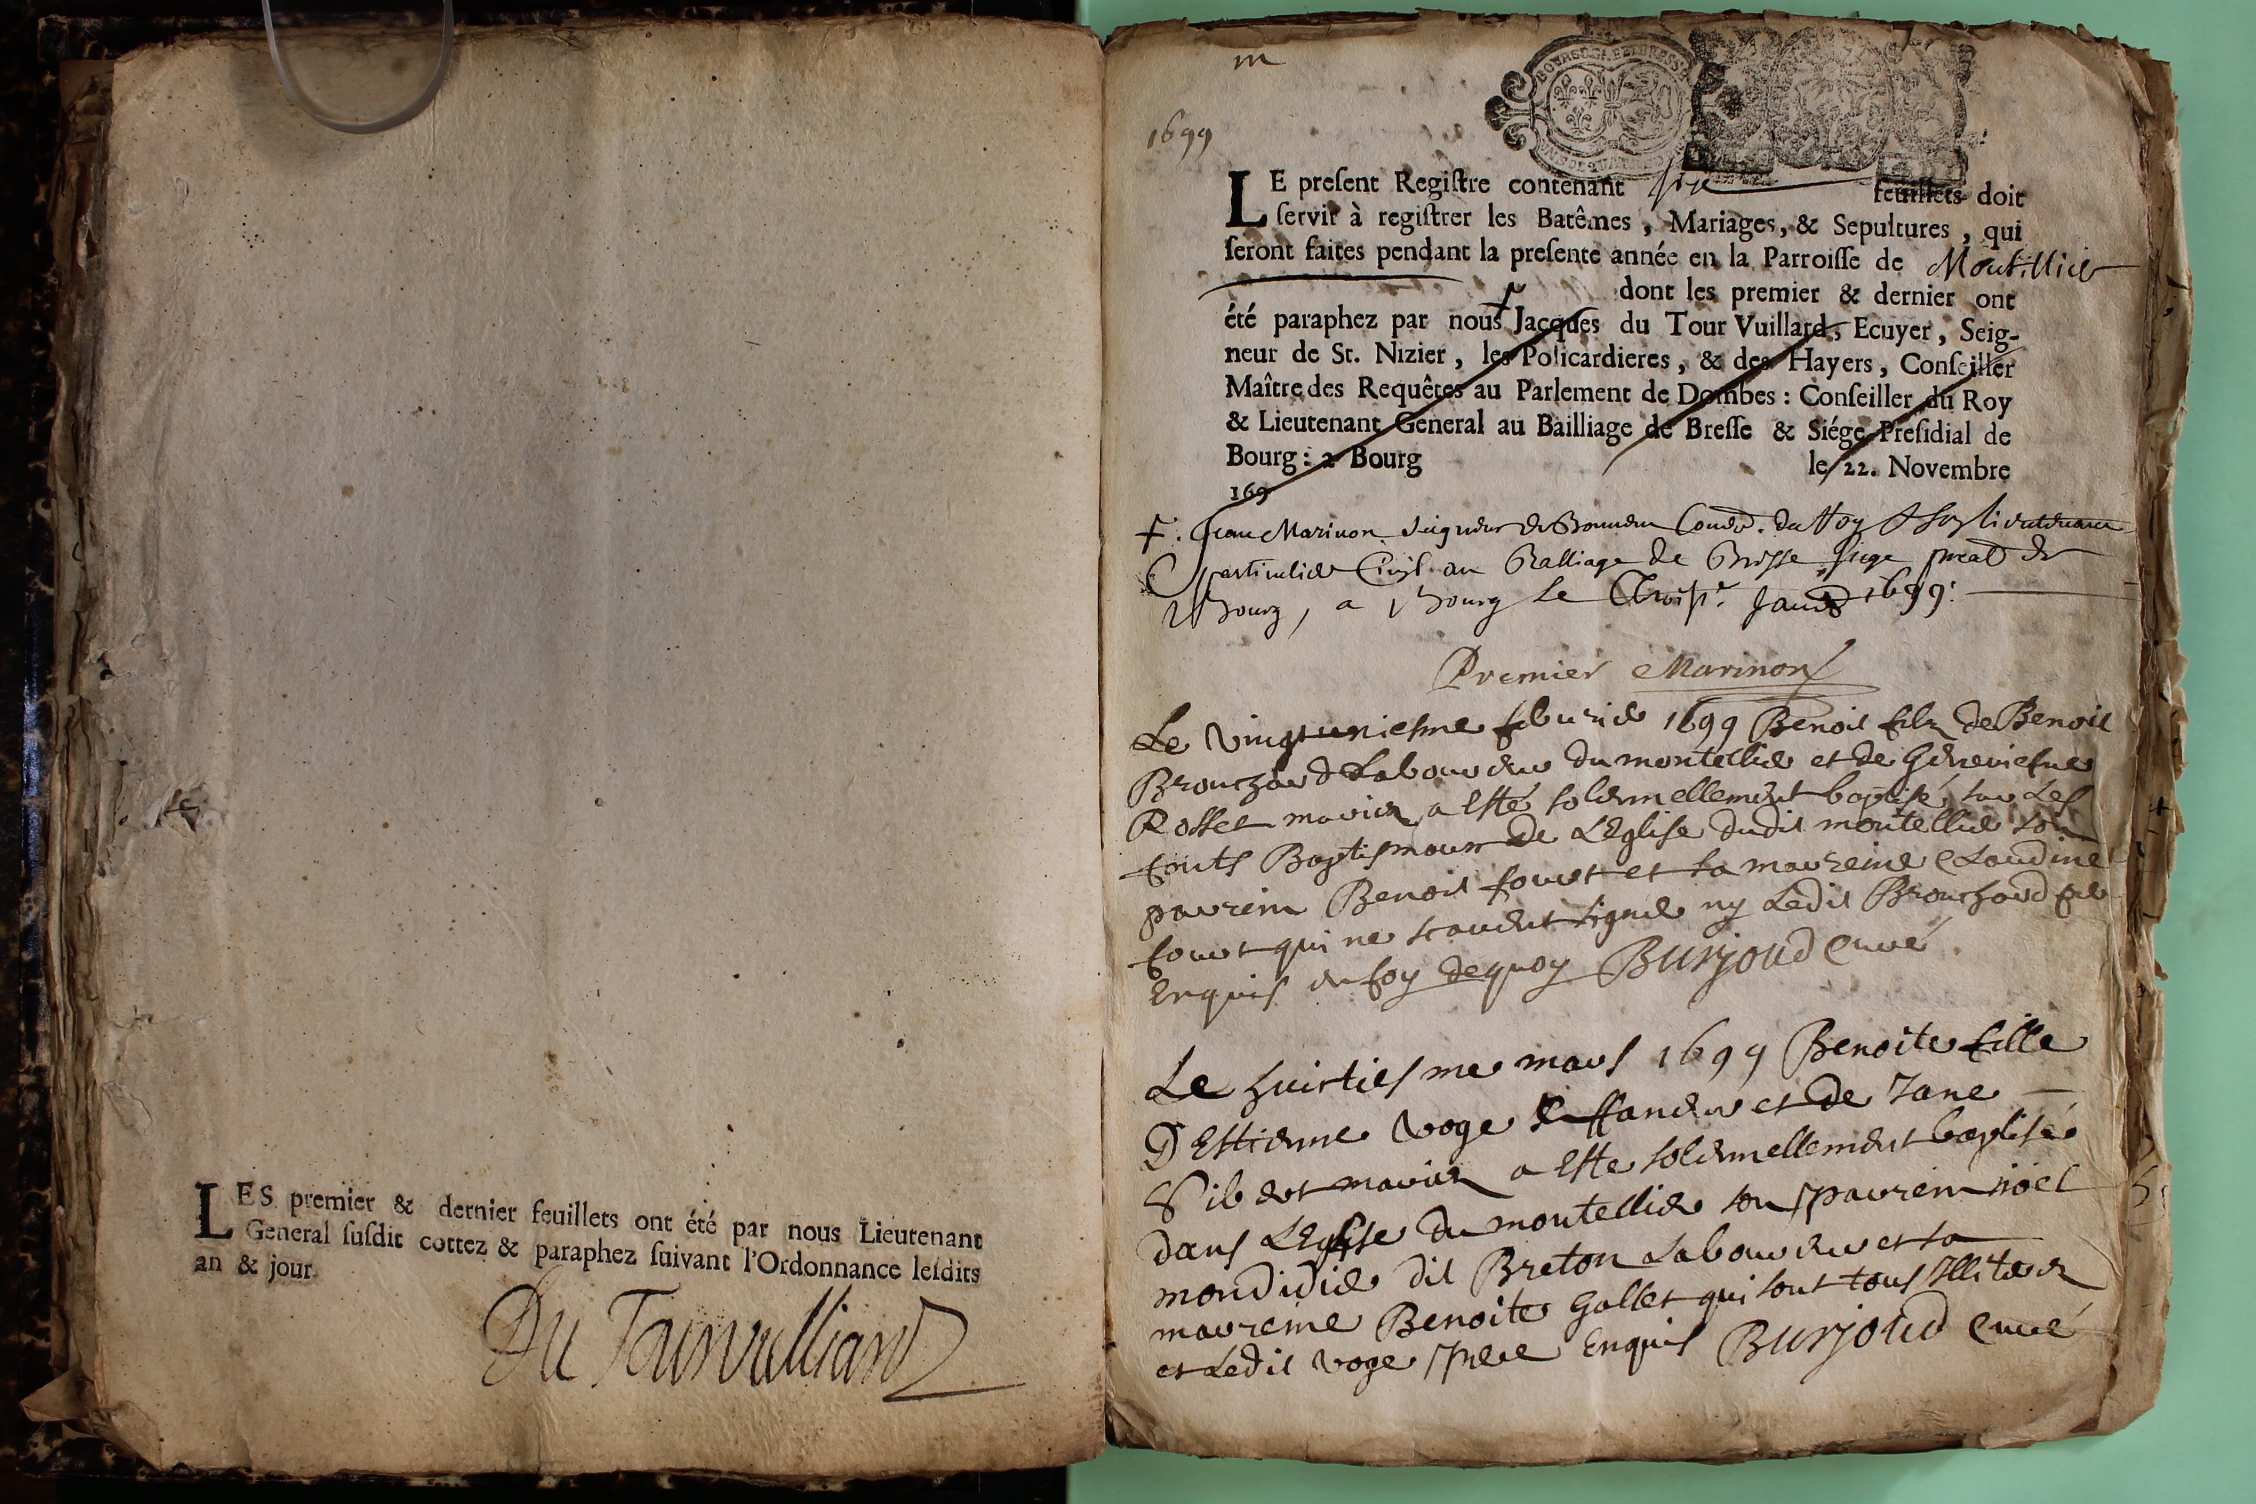 LES premier & dernier feuillets ont été par nous Lieutenant
General suſdit cottez & paraphez ſuivant l'Ordonnance leſdits
an & jour
Du Tourvulliard
m
1699
BOURGOGNE BRESSE
LE preſent Regiſtre contenant ſix feuillets doit
ſervir à regiſtrer les Batêmes, Mariages, & Sepultures, qui
ſeront faites pendant la preſente année en la Parroiſſe de Montillier
dont les premier & dernier ont
été paraphez par nous Jacques du Tour Vuillard, Ecuyer, Seig-
neur de St. Nizier, les Policardieres, & des Hayers, Conſeiller
Maître des Requêtes au Parlement de Dombes : Conſeiller du Roy
& Lieutenant General au Bailliage de Breſſe & Siége Preſidial de
Bourg : a Bourg le 22. Novembre
169
Jean Marinon Seigneur de du Roy Lieutenant
Particulier Civil au Balliage de Bresse siege de
Bourg, a Bourg Le 1699.
Premier Marinon
Le vingtuniesme feburier 1699 Benoit filz de Benoit
Brouchard Laboureur du montellier et de Geneviefue
Rosset mariez a esté solemnellement baptisé sur Les
fonts Baptismaux de L'Eglise dudit montellier son
parrein Benoit foret et sa marreine Claudine
foret qui ne scauent signer ny Ledit Brouchard pere
Enquis en foy dequoy Burjoud curé
Le huictiesme mars 1699 Benoite fille
D'Estienne Voge et de Jane
Gibert mariez a este solemnellement baptisée
dans L'Eglise du montellier son parrein noël
mondidier dit Breton Laboureur et sa
marreine Benoite Gallet qui sont tous Illiterez
et Ledit Voge pere Enquis Burjoud curé